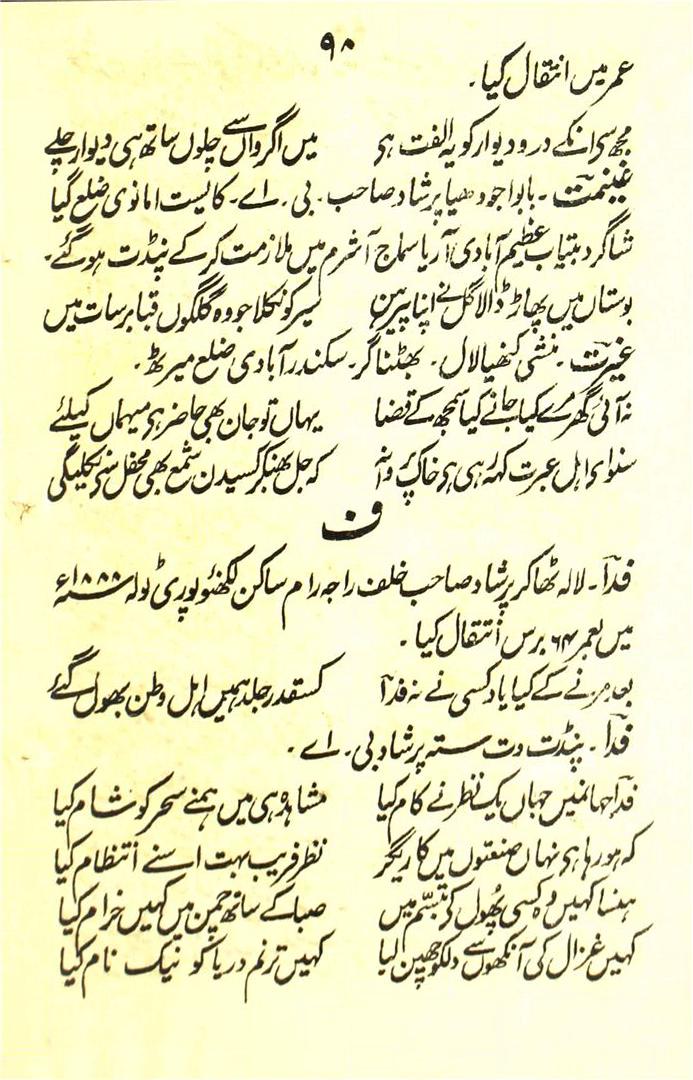 ۹۰
عمر میں انتقال کیا۔
مجھ سی انکے در و دیوار کو یہ الفت ہی میں اگر واں سے چلوں ساتھ ہی دیوار چلے
غنیمت ۔ بابو اجودھیا پرشاد صاحب ۔ بی ۔ اے ۔ کالیست امانوی ضلع گیا
شاگرد بیتاب عظیم آبادی آریا سماج آشرم میں ملازمت کر کے پنڈت ہوگئے ۔
بوستاں میں پھاڑ ڈالا گل نے اپنا پیرہن سیر کو نکلا جو وہ گلگوں قبا برسات میں
غیرت ۔ منشی کنھیا لال ۔ بھٹناگر ۔ سکندرآبادی ضلع میرٹھ ۔
نہ آئی گھر مرے کیا جانے کیا سمجھ کے قضا یہاں تو جان بھی حاضر ہی میہماں کیلئے
سنو ای اہل عبرت کہہ رہی ہی خاک پروانہ کہ جل بھنکر کسیدن شمع بھی محفل سے نکلیگی
ف
فدا ۔ لالہ ٹھاکر پرشاد صاحب خلف راجہ رام ساکن لکھنؤ پوری ٹولہ سنہ ۱۸۸۸ء
میں بعمر ۶۴ برس انتقال کیا ۔
بعد مرنے کے کیا یاد کسی نے نہ فدا کسقدر جلد ہمیں اہل وطن بھول گئے
فدا ۔ پنڈت دت ستہ پرشاد بی ۔ اے ۔
فدا جہانمیں جہاں یک نظر نے کام کیا مشاہدہ ہی میں ہمنے سحر کو شام کیا
کہ ہو رہا ہی نہاں صنعتوں میں کاریگر نظر فریب بہت اسنے انتظام کیا
ہنسا کہیں وہ کسی پھول کے تبسّم میں صبا کے ساتھ چمن میں کہیں خرام کیا
کہیں غزال کی آنکھوں سے دلکو چھین لیا کہیں ترنم دریا کو نیک نام کیا